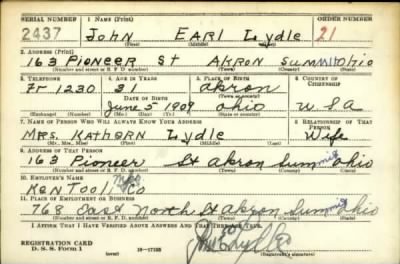 SERIAL NUMBER 1. NAME (Print) ORDER NUMBER
2437 JOHN EARL Lydle 21
(First) (Middle) (Last)
2. ADDRESS (Print)
163 PIONEER St AKRON SUMMIT Ohio
(Number and street or R. F. D. number) (Town) (County) (State)
3. TELEPHONE 4. AGE IN YEARS 5. PLACE OF BIRTH 6. COUNTRY OF CITIZENSHIP
Fr 1230 31 Akron
DATE OF BIRTH
June 5 1909 Ohio U.S.A
(Exchange) (No.) (Mo.) (Day) (Yr.) (State or country)
7. NAME OF PERSON WHO WILL ALWAYS KNOW YOUR ADDRESS 8. RELATIONSHIP OF THAT PERSON
MRS. KATHERN Lydle Wife
(Mr., Mrs., Miss) (First) (Middle) (Last)
9. ADDRESS OF THAT PERSON
163 Pioneer St Akron Summit Ohio
(Number and street or R. F. D. number) (Town) (County) (State)
10. EMPLOYER'S NAME
Ken Tool Mfg Co
11. PLACE OF EMPLOYMENT OR BUSINESS
768 East North St Akron Summit Ohio
(Number and street or R. F. D. number) (Town) (County) (State)
I AFFIRM THAT I HAVE VERIFIED ABOVE ANSWERS AND THAT THEY ARE TRUE.
REGISTRATION CARD
D. S. S. Form 1 (over) 16—17105
(Registrant's signature)